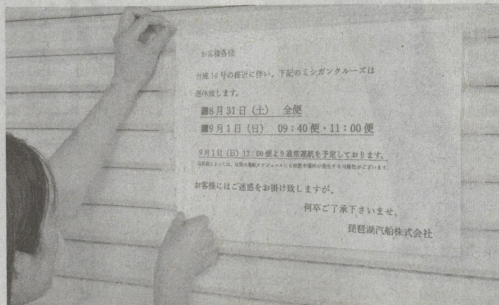 お客様各位
台風10号の接近に伴い、下記のミシガンクルーズは
運休致します。
■8月31日（土）　全便
■9月1日（日）　09：40便・11：00便
9月1日（日）13：00便より通常運航を予定しております。
可能性がございます。
お客様にはご迷惑をお掛け致しますが、
何卒ご了承下さいませ。
琵琶湖汽船株式会社